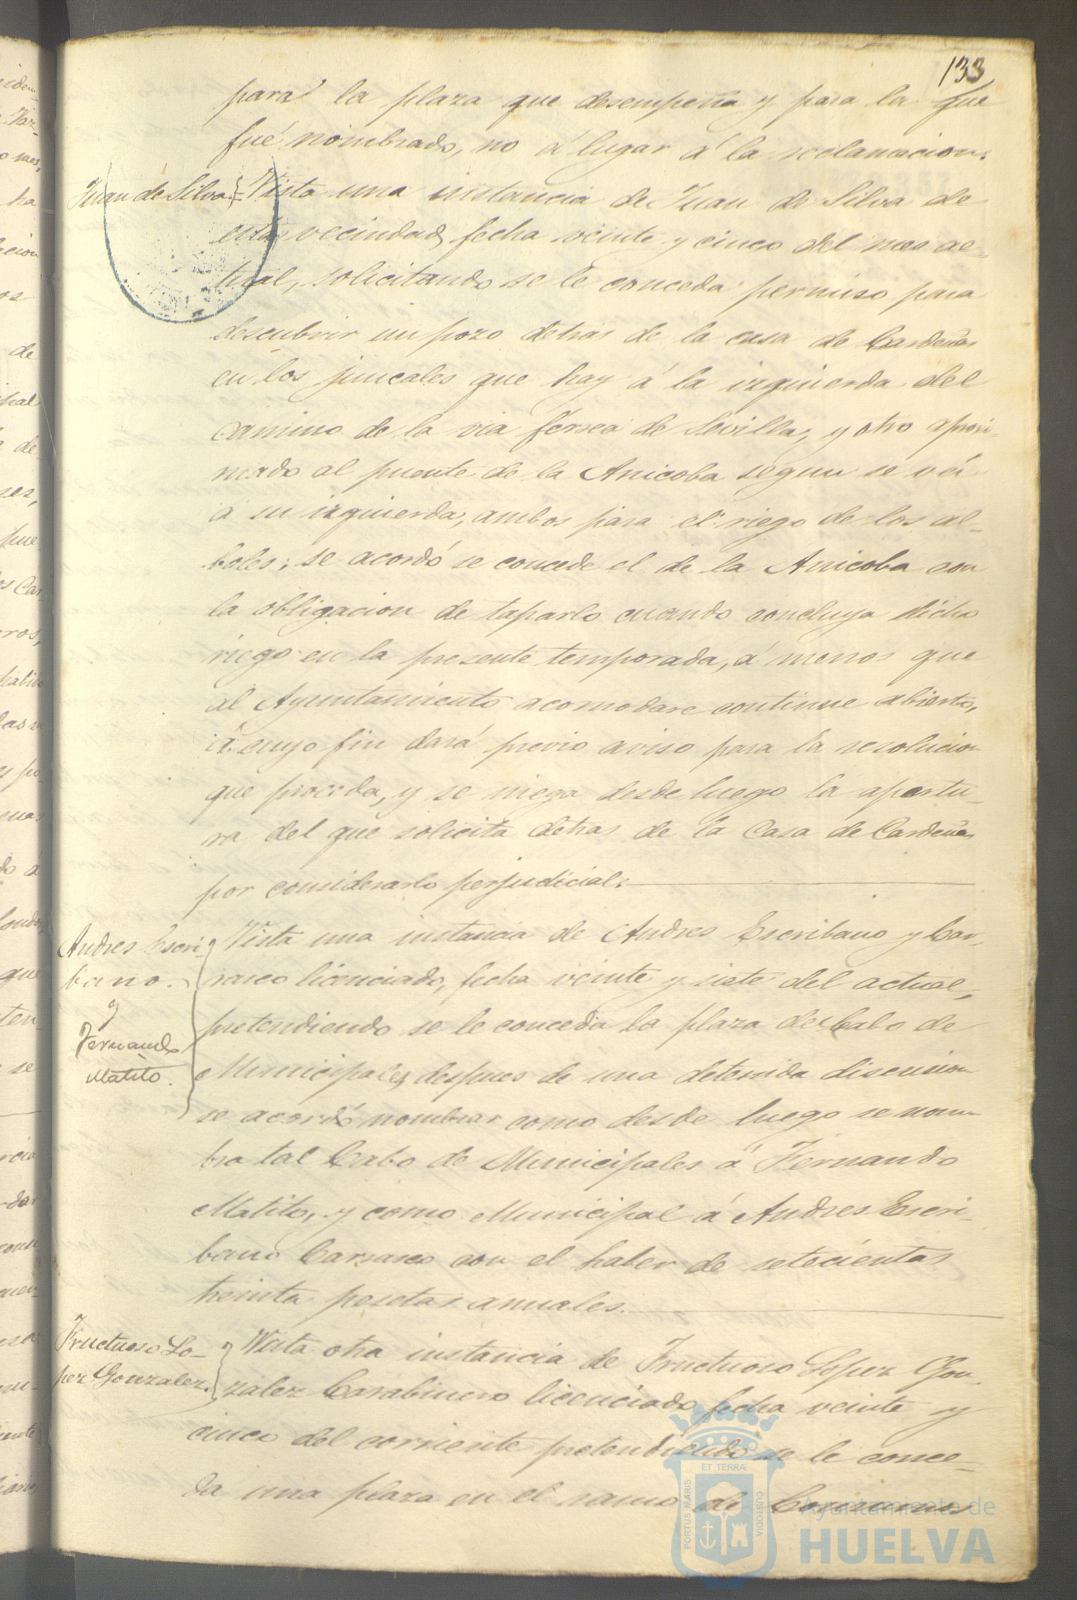 133
para la plaza que desempeña y para la que
fué nombrado, no á lugar á la reclamacion.
Juan de Silva
Vista una instancia de Juan de Silva de
esta vecindad, fecha veinte y cinco del mes ac-
tual, solicitando se le conceda permiso para
descubrir un pozo detras de la casa de Cardeñas
en los juncales que hay á la izquierda del
camino de la via ferrea de Sevilla, y otro aprosi-
mado al puente de la Anicoba segun se vá
á su izquierda, ambos para el riego de los al-
boles; se acordó se concede el de la Anicoba con
la obligacion de taparlo cuando concluya dicho
riego en la presente temporada, á menos que
al Ayuntamiento acomodare continue abierto,
á cuyo fin dará previo aviso para la resolucion
que proceda, y se niega desde luego la apertu-
ra del que solicita detras de la Casa de Cardeñas
por considerarlo perjudicial.
Andres Escri-
bano.
y
Fernando
Matito.
Vista una instancia de Andres Escribano y Car-
rasco licenciado, fecha veinte y siete del actual,
pretendiendo se le conceda la plaza de Cabo de
Municipales, despues de una detenida discusion
se acordó nombrar como desde luego se nom-
bra tal Cabo de Municipales á Fernando
Matito, y como Municipal á Andres Escri-
bano Carrasco con el haber de setecientas
treinta pesetas anuales.
Fructuoso Lo-
pez Gonzalez.
Vista otra instancia de Fructuoso Lopez Gon-
zalez Carabinero licenciado fecha veinte y
cinco del corriente pretendiendo se le conce-
da una plaza en el ramo de Consumos
PORTUS MARIS ET TERRAE CUSTODIA
Ayuntamiento de
HUELVA